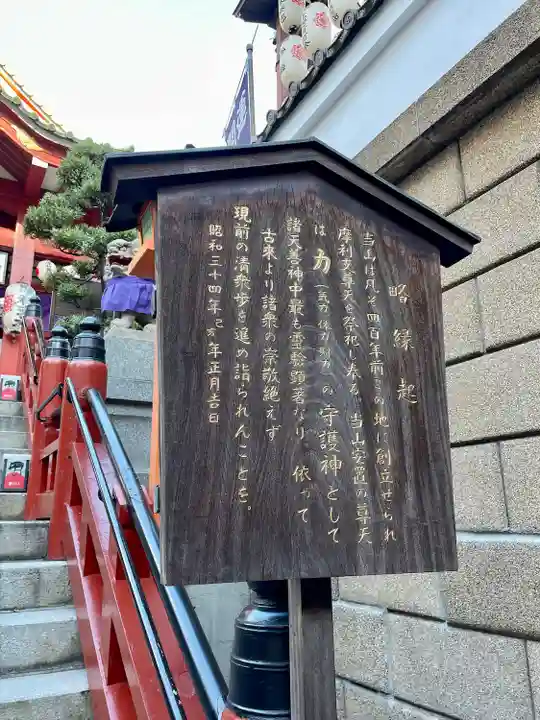 略縁起
当山は凡そ四百年前この地に創立せられ
摩利支尊天を祭祀し奉る、当山安置の尊天
は 力（気力 体力 財力）の守護神として
諸天善神中最も霊験顕著なり。依って
古来より諸衆の崇敬絶えず
現前の清衆歩を進め詣られんことを。
昭和三十四年己亥年正月吉日